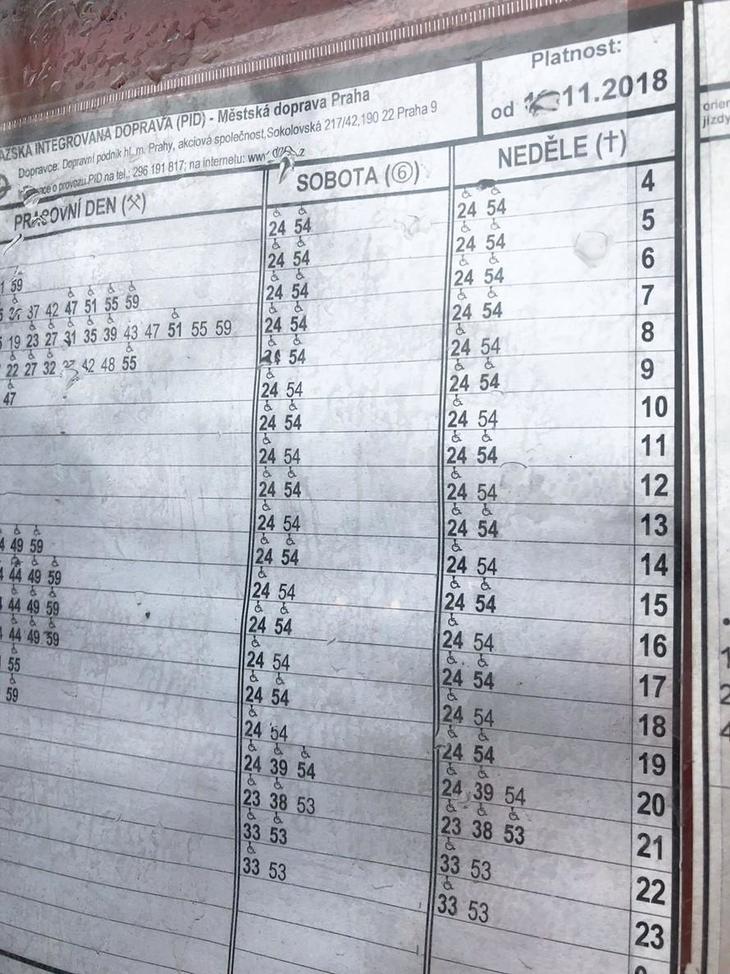 Platnost:
od 11.2018
INTEGROVANÁ DOPRAVA (PID) - Městská doprava Praha
Dopravce: Dopravní podnik hl. m. Prahy, akciová společnost, Sokolovská 217/42, 190 22 Praha 9
o provozu PID na tel.: 296 191 817; na internetu:
PRACOVNÍ DEN (⚒) SOBOTA (⑥) NEDĚLE (†)
24 54 24 54 4
59 24 54 24 54 5
37 42 47 51 55 59 24 54 24 54 6
19 23 27 31 35 39 43 47 51 55 59 24 54 24 54 7
22 27 32 42 48 55 54 24 54 8
47 24 54 24 54 9
24 54 24 54 10
24 54 24 54 11
24 54 24 54 12
24 54 24 54 13
49 59 24 54 24 54 14
44 49 59 24 54 24 54 15
44 49 59 24 54 24 54 16
44 49 59 24 54 24 54 17
55 24 54 24 54 18
59 24 54 24 54 19
24 39 54 24 39 54 20
23 38 53 23 38 53 21
33 53 33 53 22
33 53 33 53 23